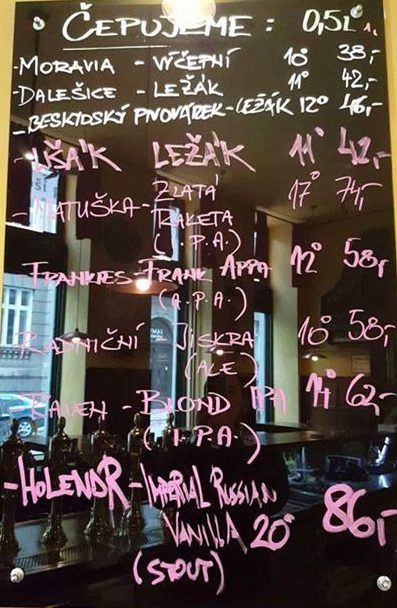 ČEPUJEME: 0,5L
-MORAVIA - VÝČEPNÍ 10° 38,-
-DALEŠICE - LEŽÁK 11° 42,-
-BESKIDSKÝ PIVOVÁREK-LEŽÁK 12° 46,-
-LŠÁÍK LEŽÁK 11° 42,-
-MATUŠKA- ZLATÁ 17° 74,-
RAKETA
(I.P.A.)
FRANKIES-FRANK APPA 12° 58,-
(A.P.A.)
RADNIČNÍ JISKRA 10° 58,-
(ALE)
-RAVEN - BLOND IPA 14° 62,-
(I.P.A.)
-HOLENDR-IMPERIAL RUSSIAN
VANILLA 20° 86,-
(STOUT)